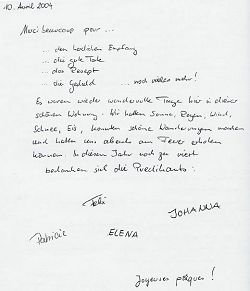 10. April 2004
Merci beaucoup pour ...
... den herzlichen Empfang
... die gute Torte
... das Rezept
... die Geduld ... noch vieles mehr!
Es waren wieder wundervolle Tage hier in dieser
schönen Wohnung. Wir hatten Sonne, Regen, Wind,
Schnee, Eis, konnten schöne Wanderungen machen
und hatten uns abends am Feuer erholen
können. In diesem Jahr noch zu viert
bedanken sich die
Felix
JOHANNA
Patricie
ELENA
Joyeuses pâques!